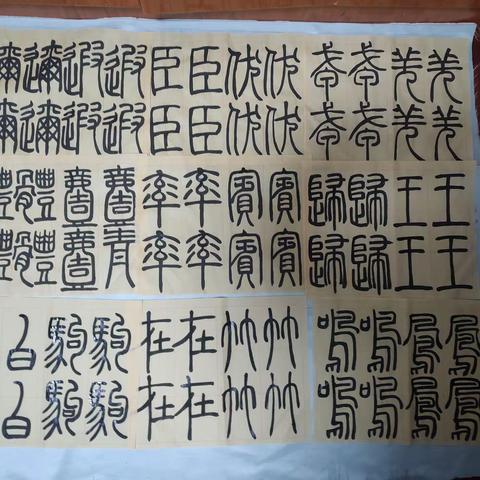 邇邇遐遐臣臣伏伏戎戎羌羌
邇邇遐遐臣臣伏伏戎戎羌羌
體體壹壹率率賓賓歸歸王王
體體壹率率賓賓歸歸王王
白駒駒在在竹竹鳴鳴鳳鳳
白駒駒在在竹竹鳴鳴鳳鳳